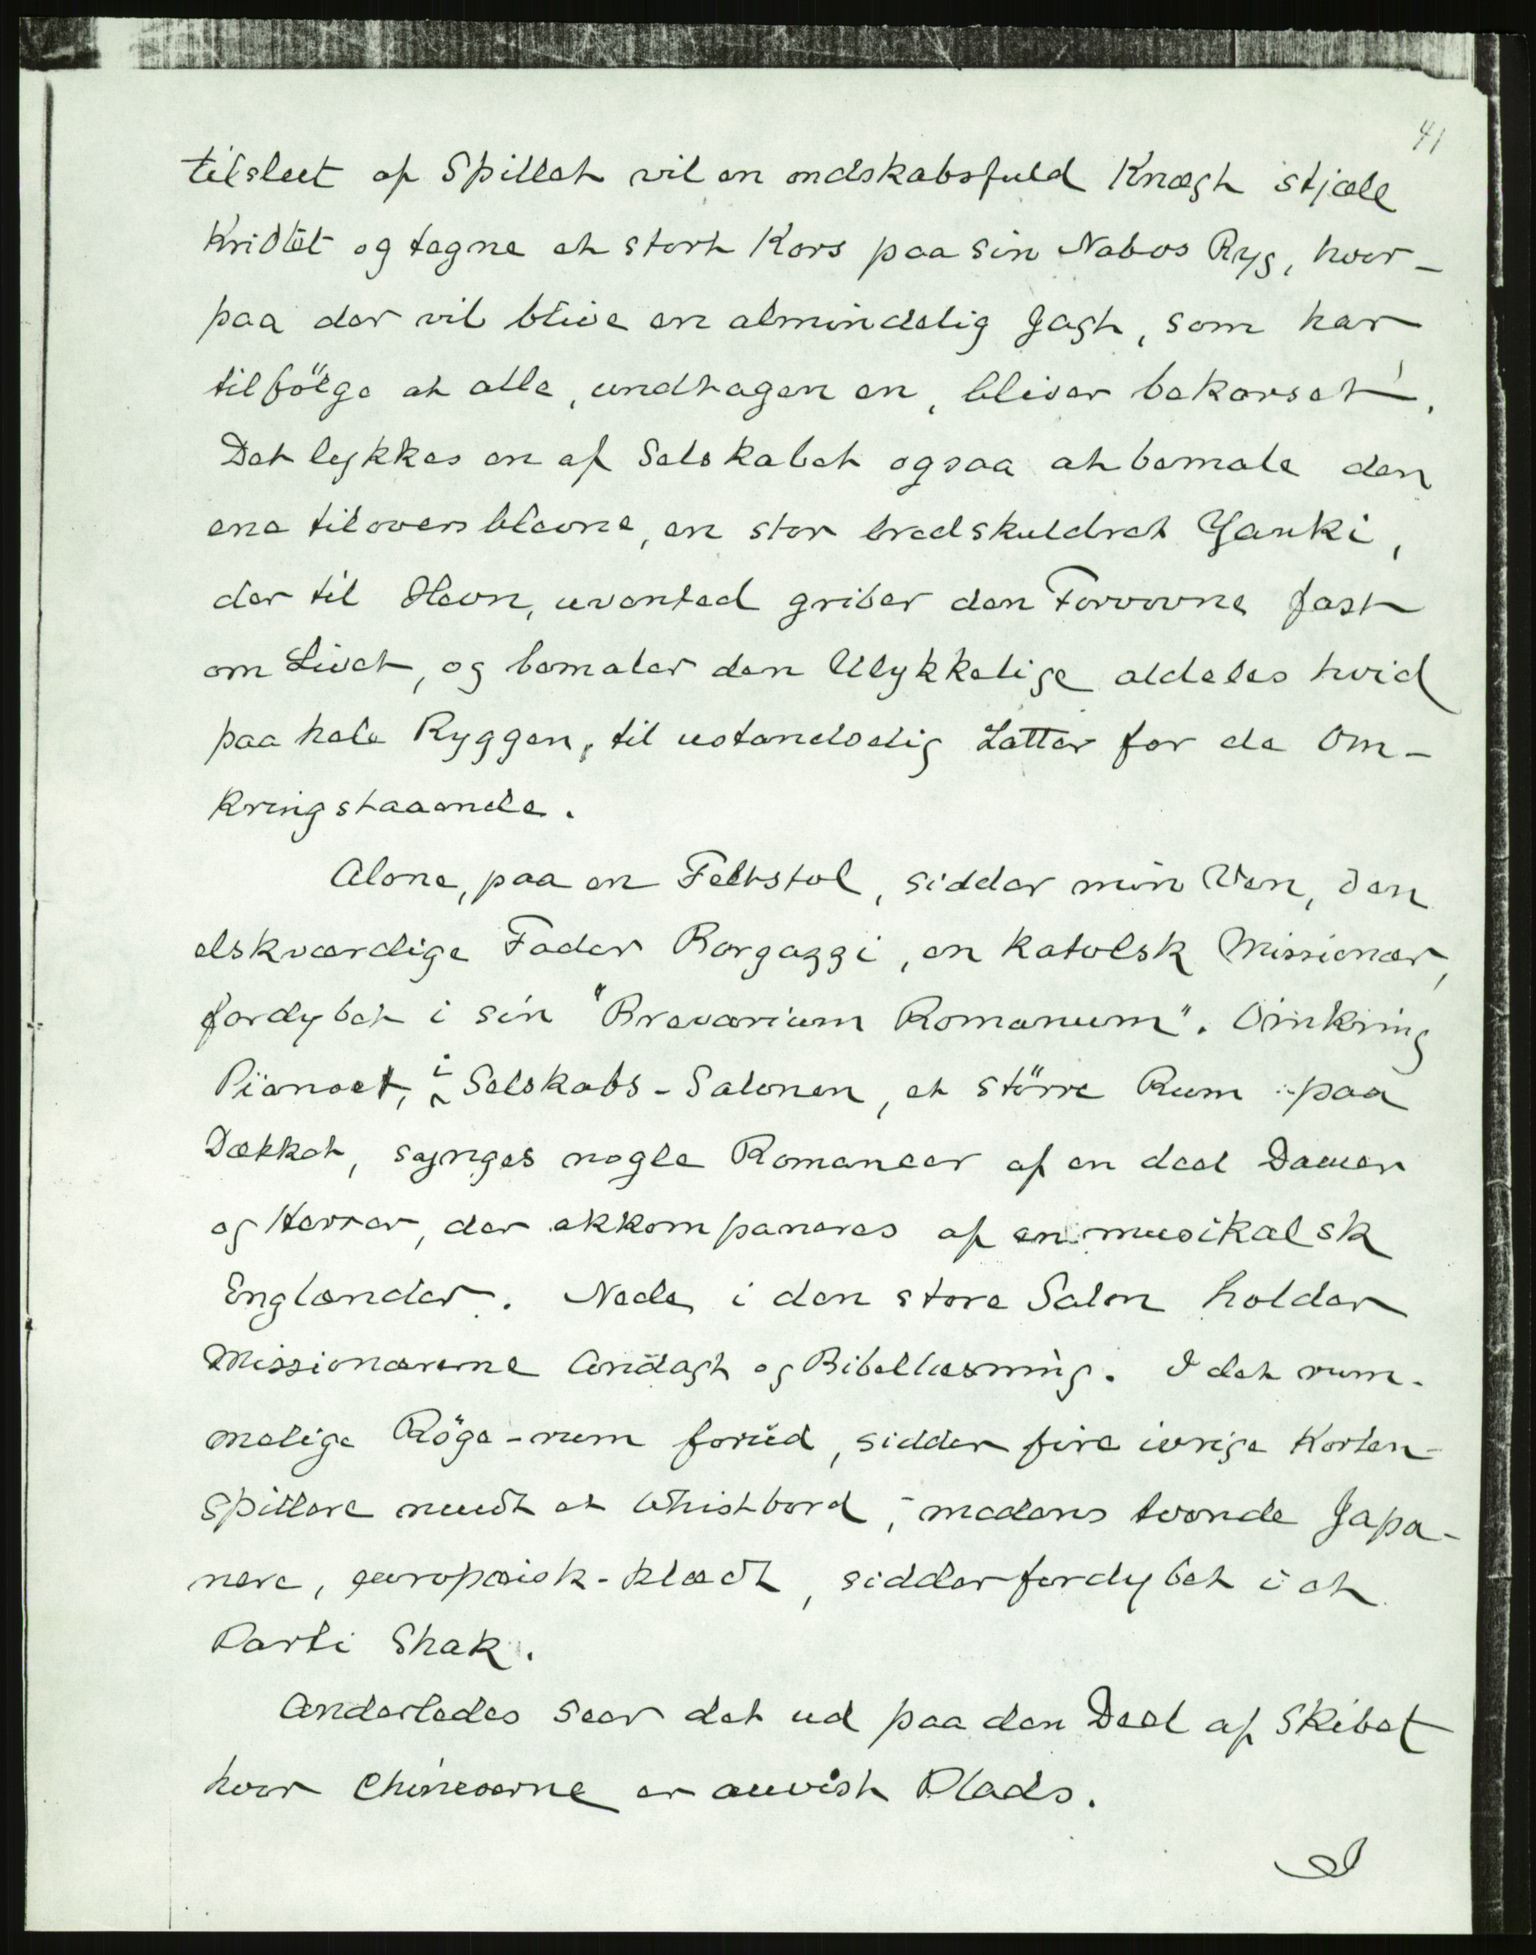 41
tilslut af Spillet vil en ondskabsfuld Knægt stjæle
Kridtet og tegne et stort Kors paa sin Nabos Ryg, hvor-
paa der vil blive en almindelig Jagt, som har
tilfölge at alle, undtagen en, bliver bekorset!
Det lykkes en af Selskabet ogsaa at bemale den
ene tiloversblevne, en stor bredskuldret Yanki,
der til Hevn, uvented griber den Forvovne fast
om Livet, og bemaler den Ulykkelige aldeles hvid
paa hele Ryggen, til ustandselig Latter for de Om-
kringstaaende.
Alene, paa en Feltstol, sidder min Ven, den
elskværdige Fader Borgazzi, en katolsk Missionær,
fordybet i sin "Brevarium Romanum". Omkring
Pianoet, i Selskabs-Salonen, et större Rum paa
Dækket, synges nogle Romancer af en deel Damer
og Herrer, der akkompaneres af en musikalsk
Englænder. Nede, i den store Salon holder
Missionærerne Andagt og Bibellæsning. I det rum-
melige Röge-rum forud, sidder fire ivrige Korten-
spillere rundt et Whistbord, medens tvende Japa-
nere, europæisk-klædt, sidder fordybet i et
Parti Shak.
Anderledes seer det ud paa den Deel af Skibet
hvor Chineserne er anvist Plads.
I